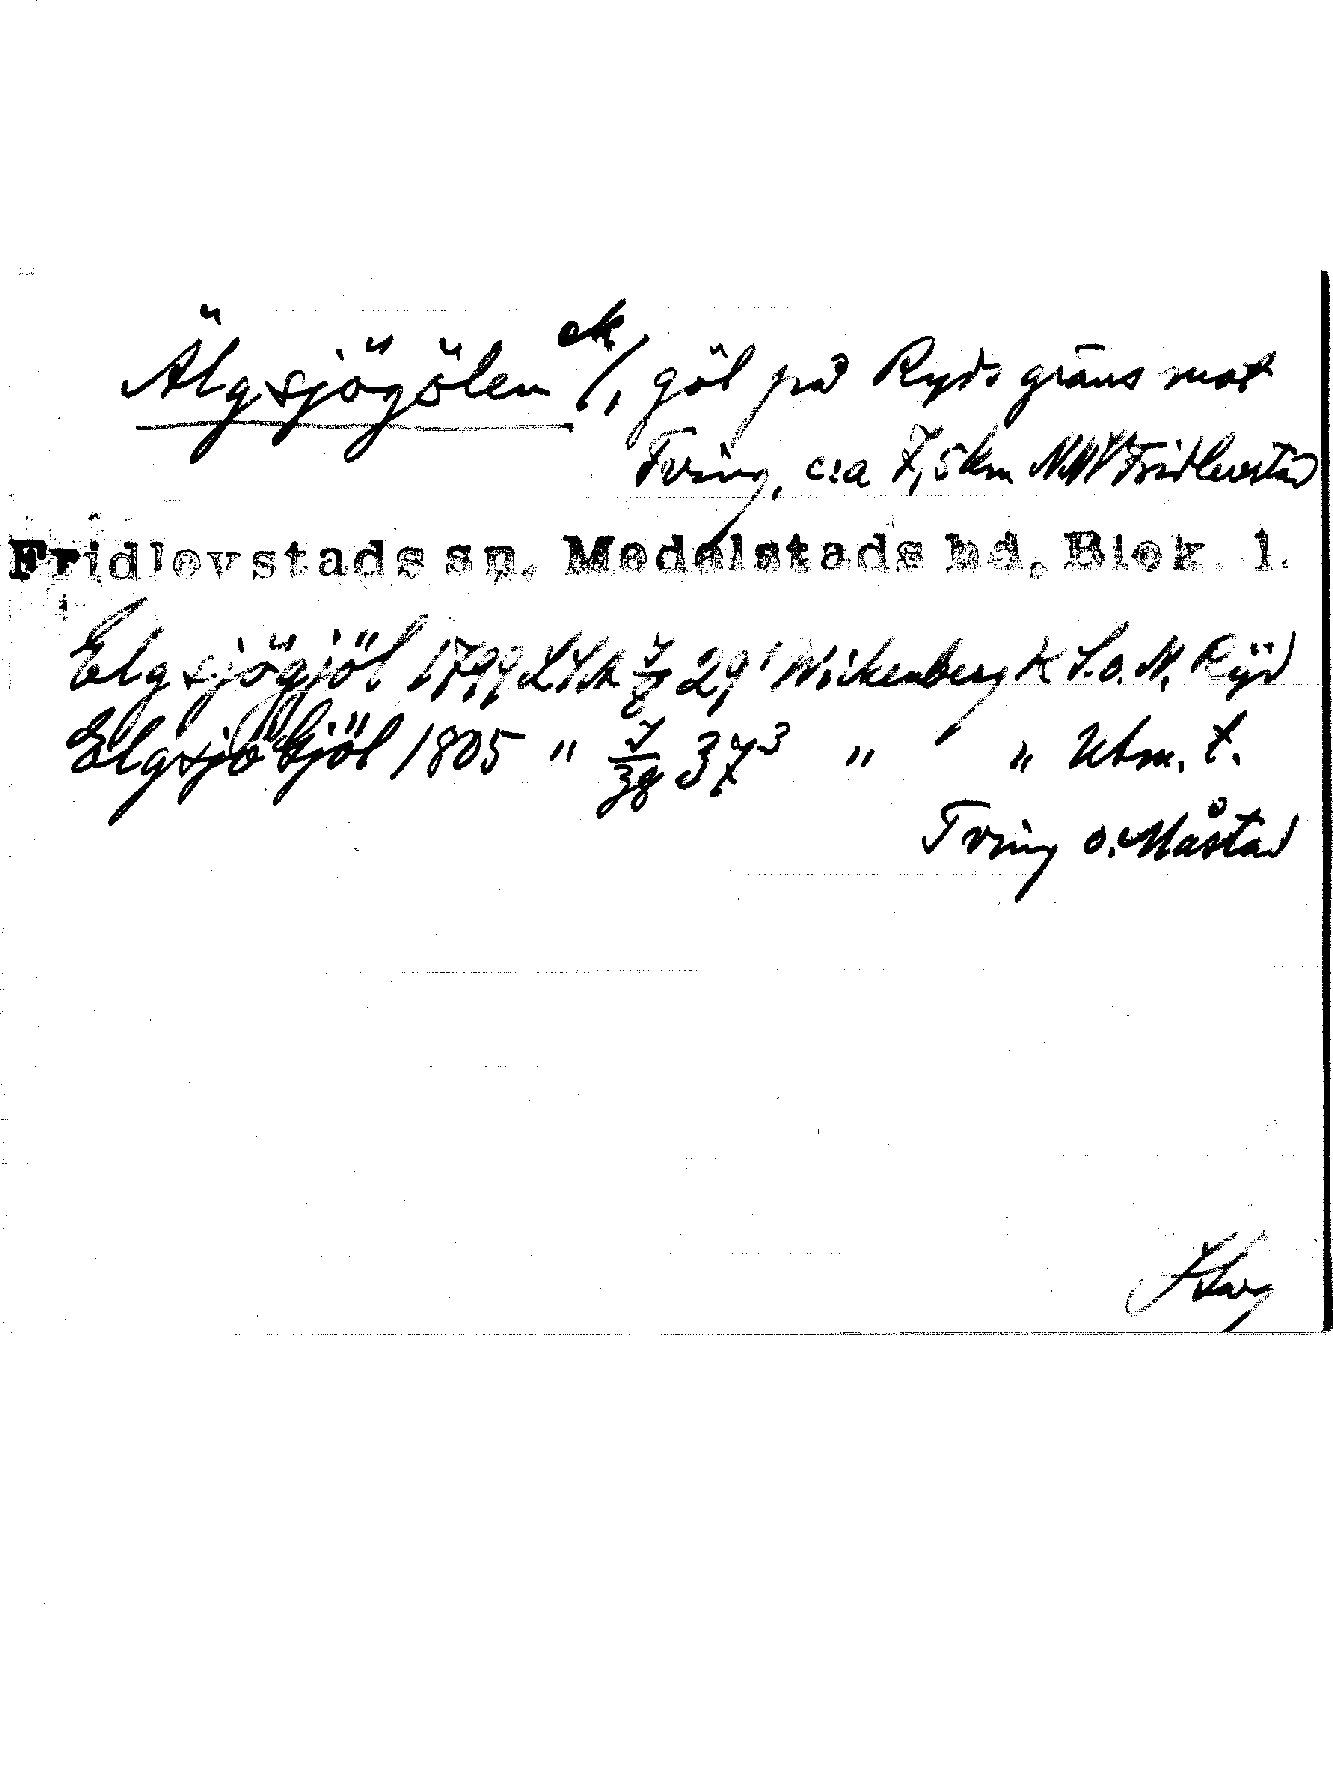 Älgsjögölen ek/, göl på Ryds gräns mot
Tving, c:a 7,5 km NNV Fridlevstad
Fridlevstads sn, Medelstads hd, Blek. l.
Elgsjögjöl 1799 LSA 29¹ Wickenberg K S.o.N. Ryd
Elgsjö Gjöl 1805 " 37³ " " Utm. t.
Tving o. Måstad